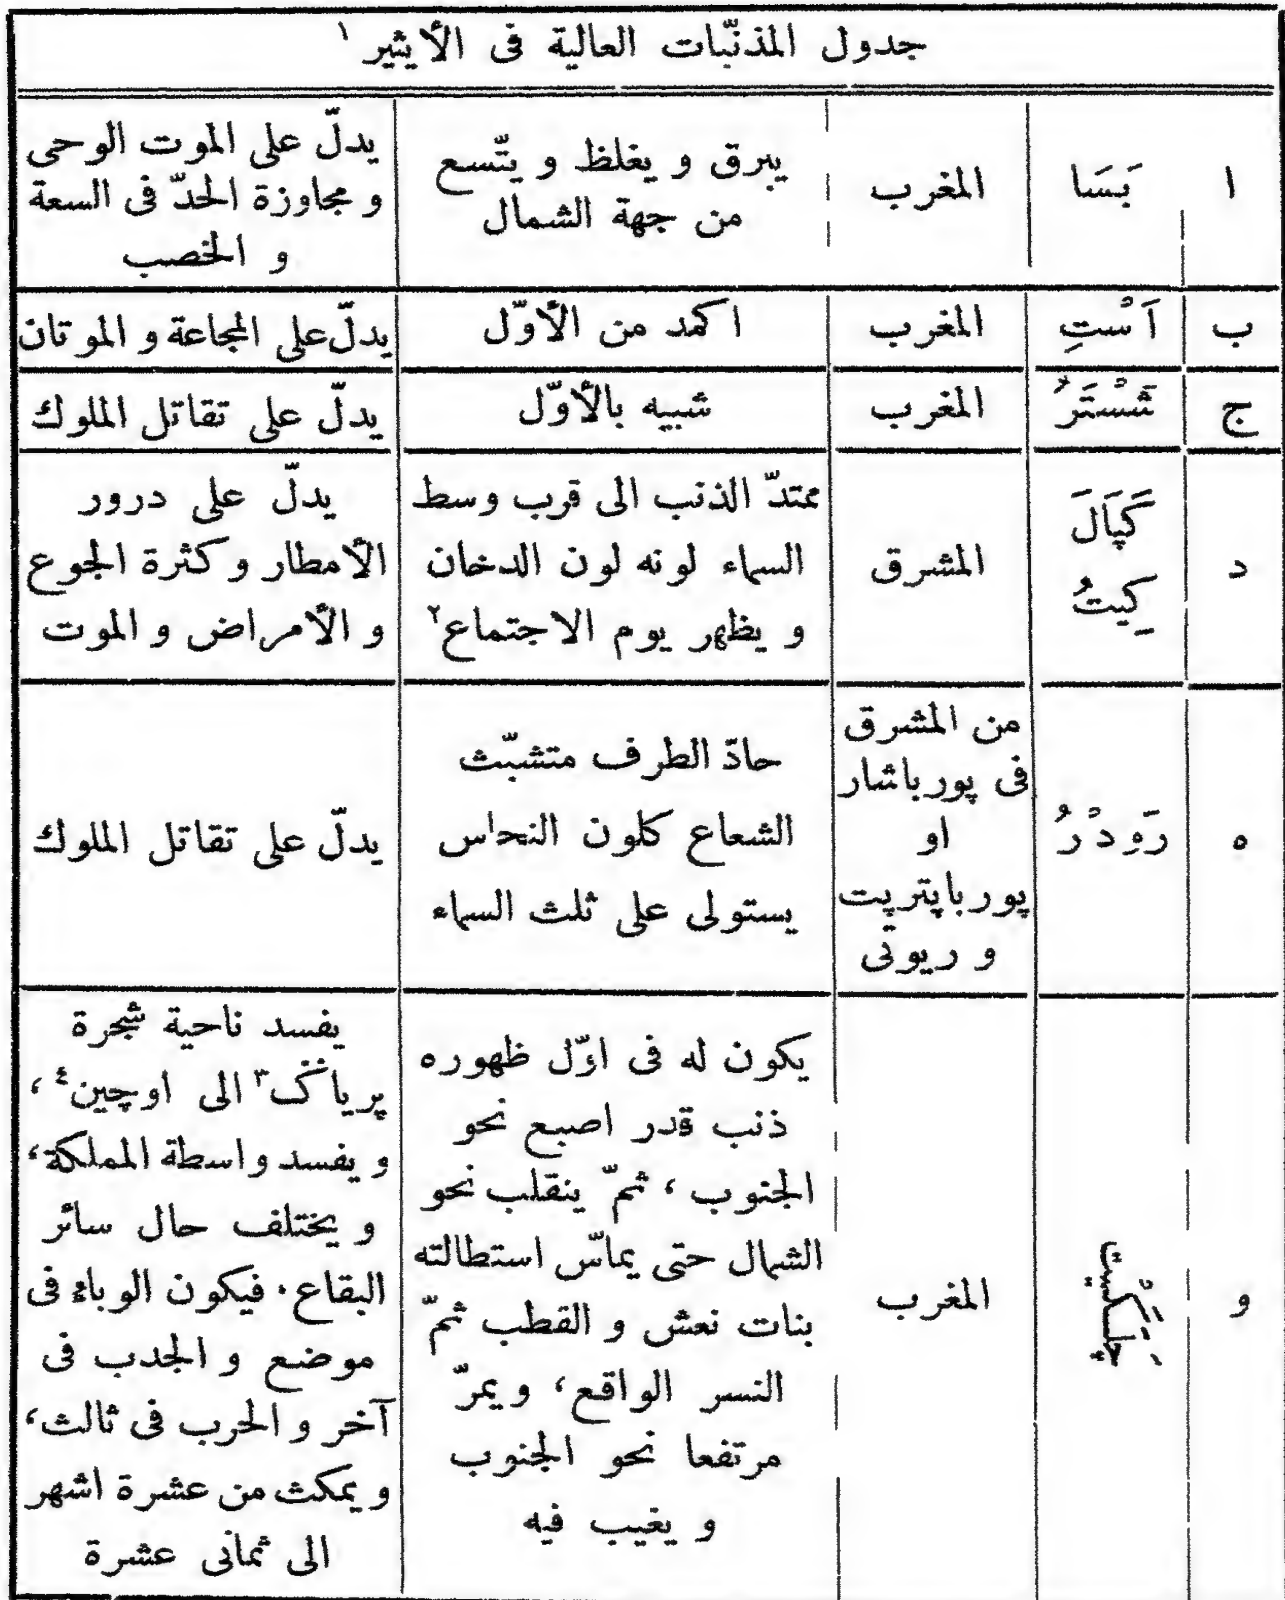 جدول المذنّبات العالية فى الأيثير ١
ا
بَسَا
المغرب
يبرق و يغلظ و يتّسع
من جهة الشمال
يدلّ على الموت الوحى
و مجاوزة الحدّ فى السعة
و الخصب
ب
اَسْتِ
المغرب
اكمد من الأوّل
يدلّ على المجاعة و الموتان
ج
شَسْتَرُ
المغرب
شبيه بالأوّل
يدلّ على تقاتل الملوك
د
كَپَالَ
كِيتُ
المشرق
ممتدّ الذنب الى قرب وسط
السماء لونه لون الدخان
و يظهر يوم الاجتماع ٢
يدلّ على درور
الأمطار و كثرة الجوع
و الأمراض و الموت
ه
رَوِدْرُ
من المشرق
فى پورباشار
او
پورباپتريت
و ريوتى
حادّ الطرف متشبّث
الشعاع كلون النحاس
يستولى على ثلث السماء
يدلّ على تقاتل الملوك
و
چلَكيت
المغرب
يكون له فى اوّل ظهوره
ذنب قدر اصبع نحو
الجنوب ، ثمّ ينقلب نحو
الشمال حتى يماسّ استطالته
بنات نعش و القطب ثمّ
النسر الواقع ، و يمرّ
مرتفعا نحو الجنوب
و يغيب فيه
يفسد ناحية شجرة
پرياݣ ٣ الى اوچين ٤ ،
و يفسد واسطة المملكة ،
و يختلف حال سائر
البقاع . فيكون الوباء فى
موضع و الجدب فى
آخر و الحرب فى ثالث ،
و يمكث من عشرة اشهر
الى ثمانى عشرة